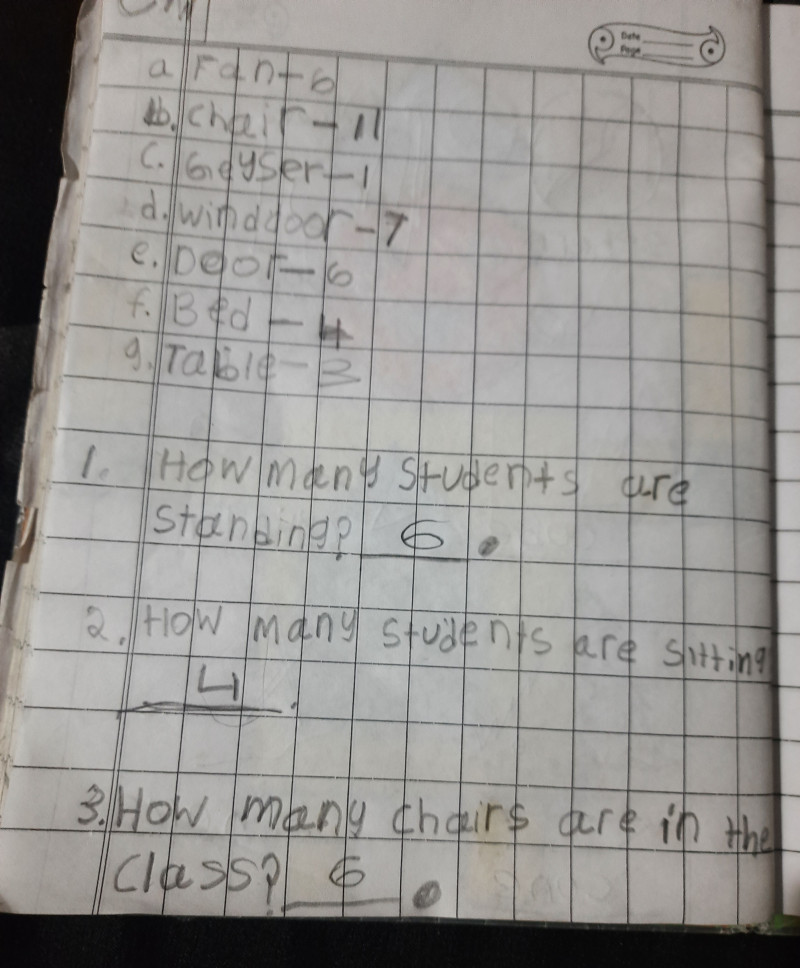 Date
Page
a Fan-6
b. Chair-11
c. Geyser-1
d. Winddoor-7
e. Door-6
f. Bed-4
g. Table-3
1. How many students are
standing? 6.
2. How many students are sitting
4.
3. How many chairs are in the
class? 6.